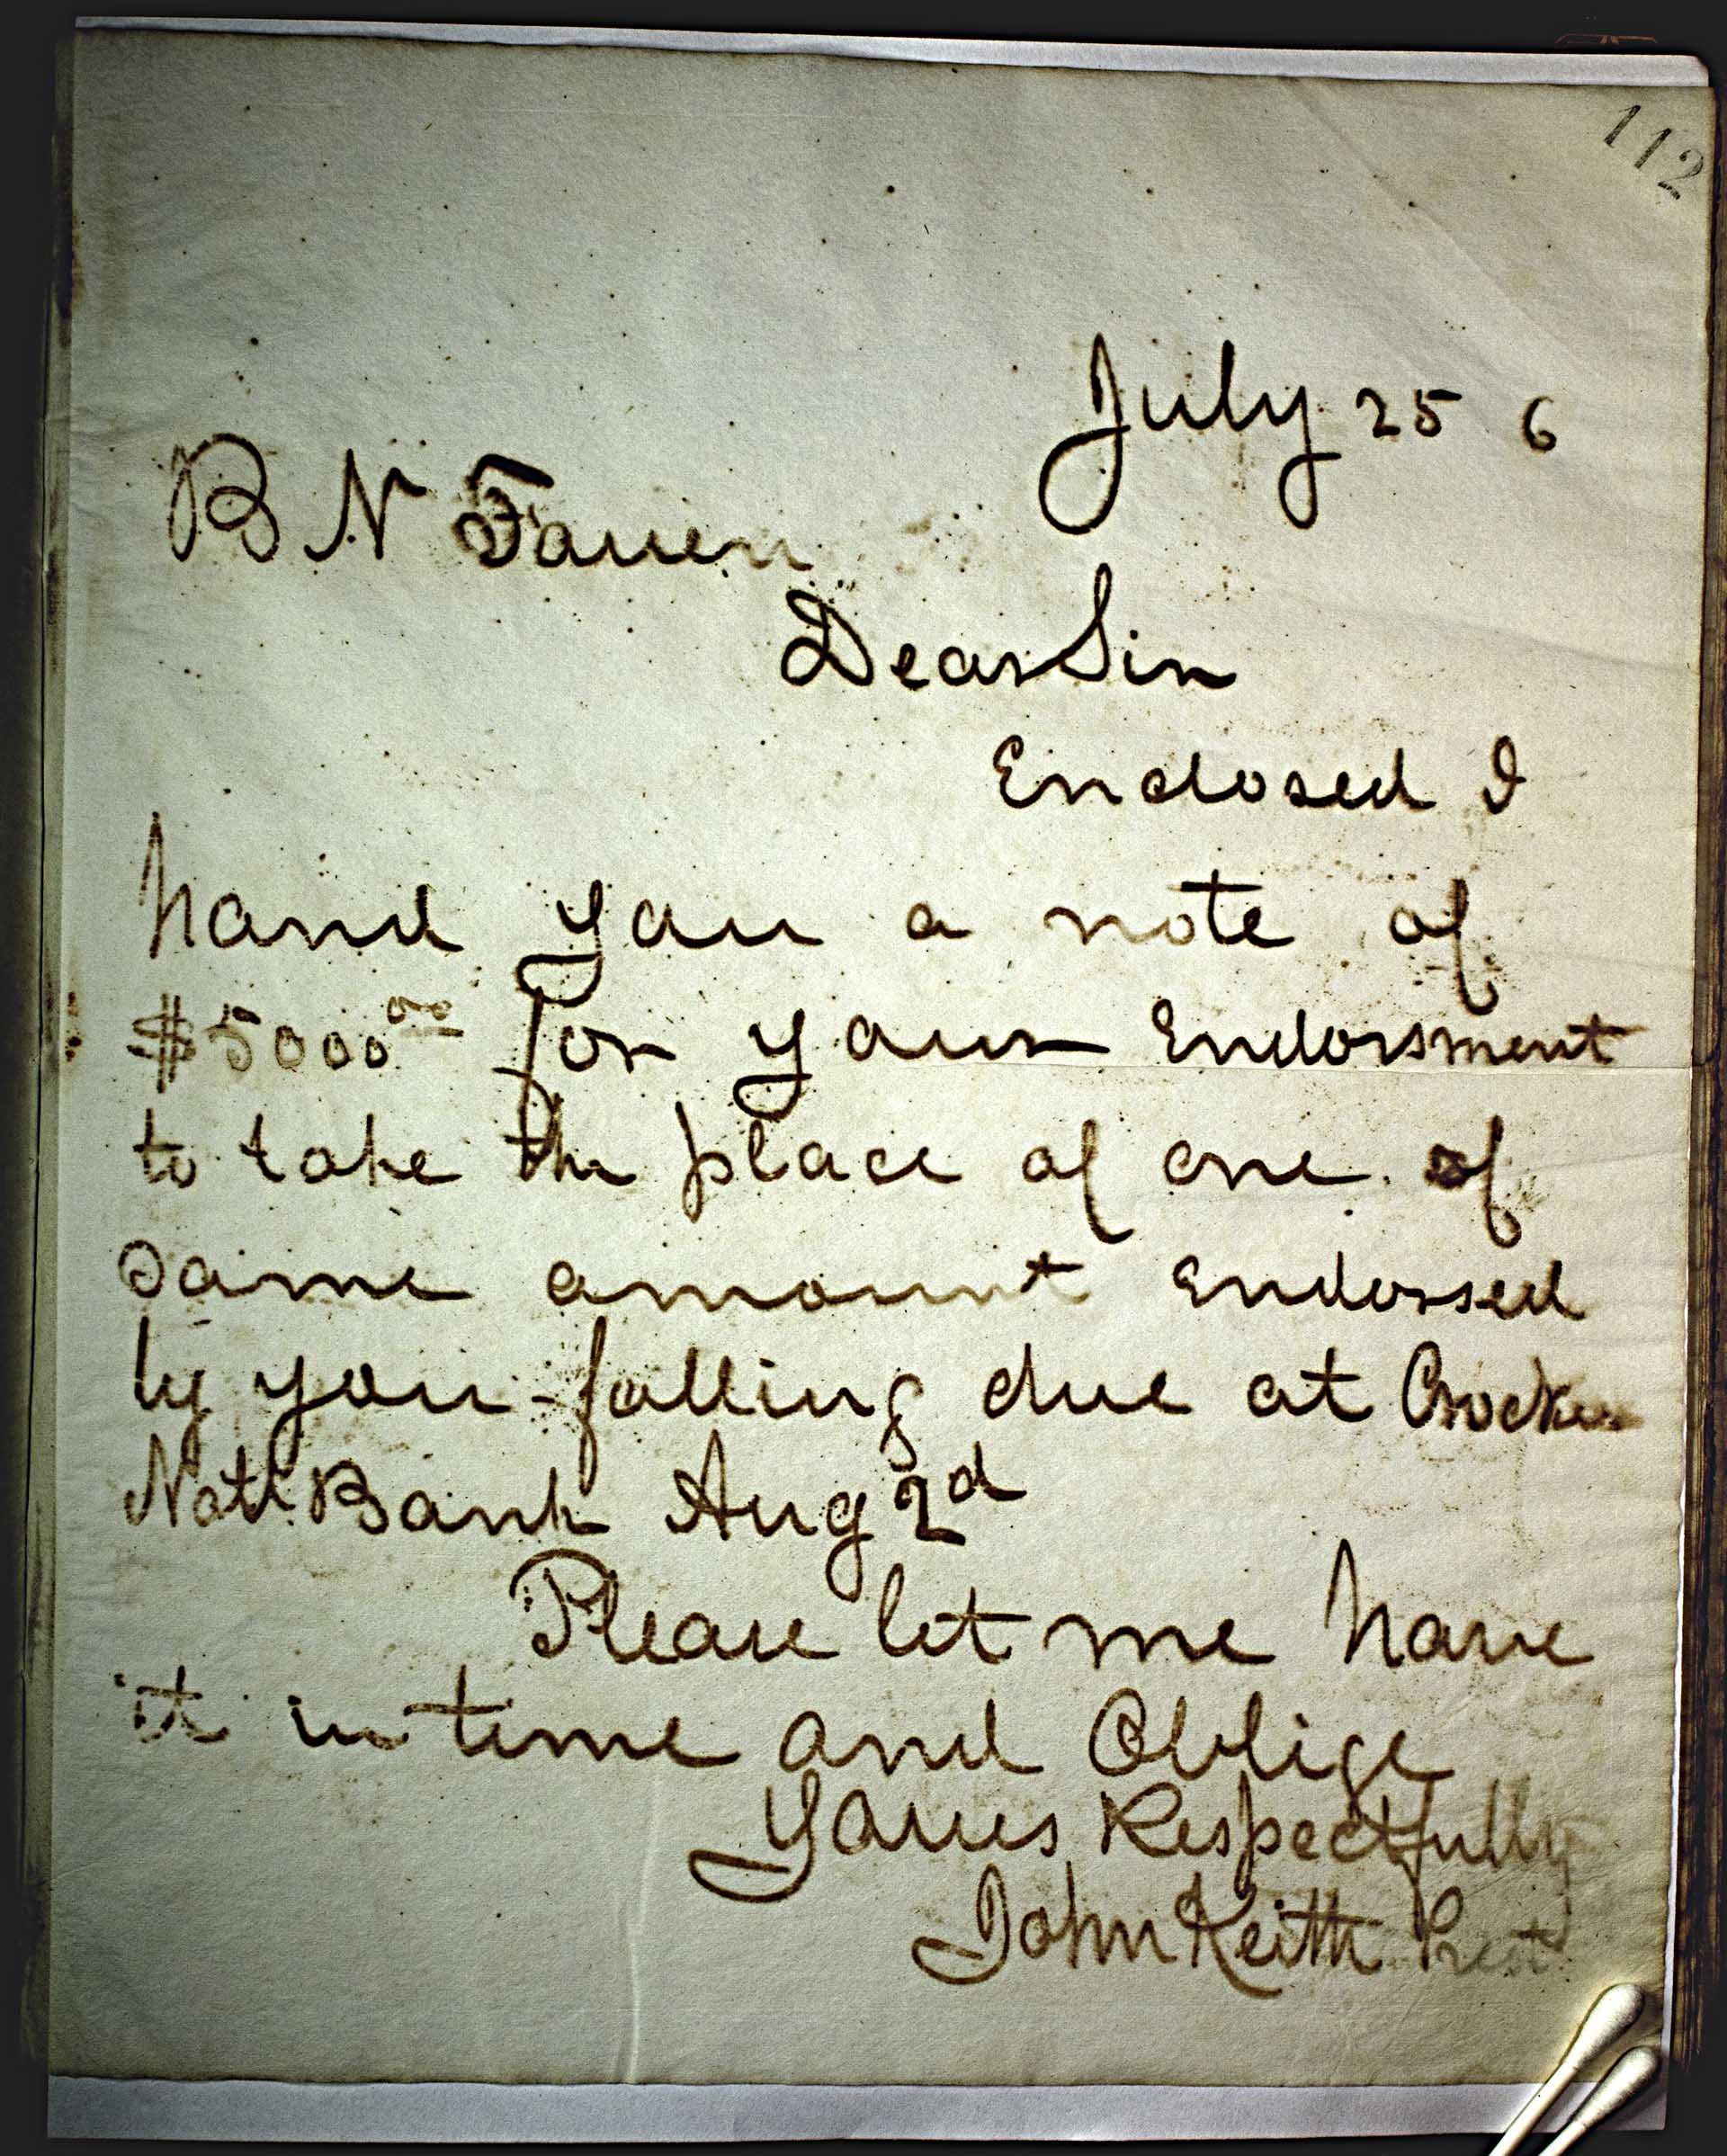 112
July 25 6
B N Farren
Dear Sir
Enclosed I
hand you a note of
$5000.00 for your Endorsment
to take the place of one of
same amount Endorsed
by you falling due at Crocker
Natl Bank Aug 2d
Please let me have
it in time and Oblige
Yours Respectfully
John Keith Prest